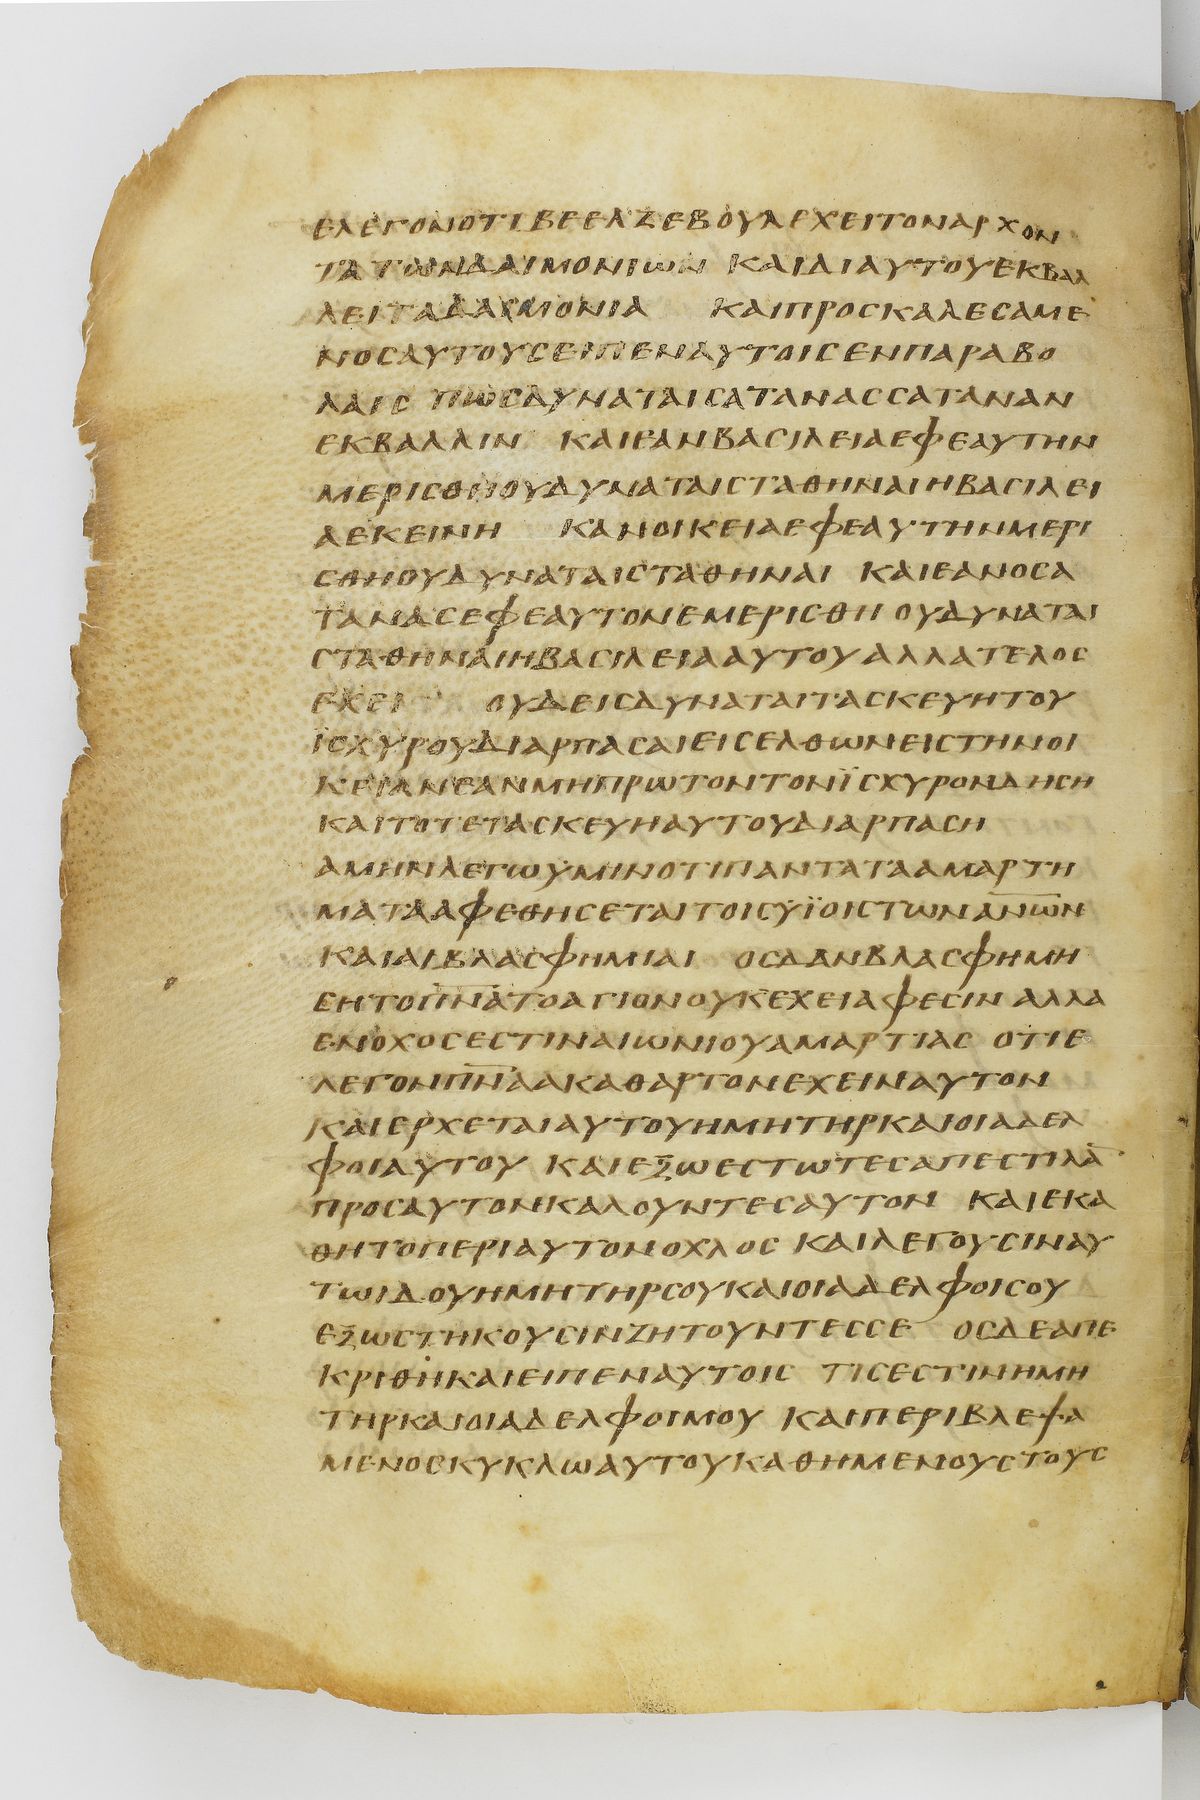 ελεγονοτιβεελζεβουλεχειτοναρχον
τατωνδαιμονιων καιδιαυτουεκβαλ
λειταδαιμονια καιπροσκαλεσαμε
νοσαυτουσειπεναυτοισενπαραβο
λαισ πωσδυναταισατανασσαταναν
εκβαλλιν καιεανβασιλειαεφεαυτην
μερισθηουδυναταισταθηναιηβασιλει
αεκεινη κανοικειαεφεαυτηνμερι
σθηουδυναταισταθηναι καιεανοσα
τανασεφεαυτονεμερισθη ουδυναται
σταθηναιηβασιλειααυτουαλλατελοσ
εχει ουδεισδυναταιτασκευητου
ϊσχυρουδιαρπασαιεισελθωνειστηνοι
κειανεανμηπρωτοντονϊσχυρονδηση
καιτοτετασκευηαυτουδιαρπαση
αμηνλεγωϋμινοτιπαντατααμαρτη
ματααφεθησεταιτοισυϊοιστωνα̅ν̅ω̅ν̅
καιαιβλασφημιαι οσδανβλασφημη
ειστοπ̅ν̅α̅τοαγιονουκεχειαφεσιν αλλα
ενοχοσεστιναιωνιουαμαρτιασ οτιε
λεγονπ̅ν̅α̅ακαθαρτονεχειναυτον
καιερχεταιαυτουημητηρκαιοιαδελ
φοιαυτου καιεξωεστωτεσαπεστιλα̅
προσαυτονκαλουντεσαυτον καιεκα
θητοπεριαυτονοχλοσ καιλεγουσιναυ
τωιδουημητηρσουκαιοιαδελφοισου
εξωστηκουσινζητουντεσσε οσδεαπε
κριθηκαιειπεναυτοισ τισεστινημη
τηρκαιοιαδελφοιμου καιπεριβλεψα
μενοσκυκλωαυτουκαθημενουστουσ